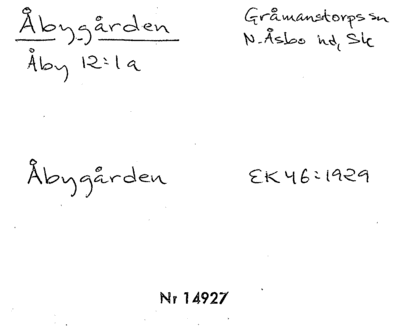 Åbygården Gråmanstorps sn
Åby 12:1a N. Åsbo hd, Sk
Åbygården EK 46:1929
Nr 14927